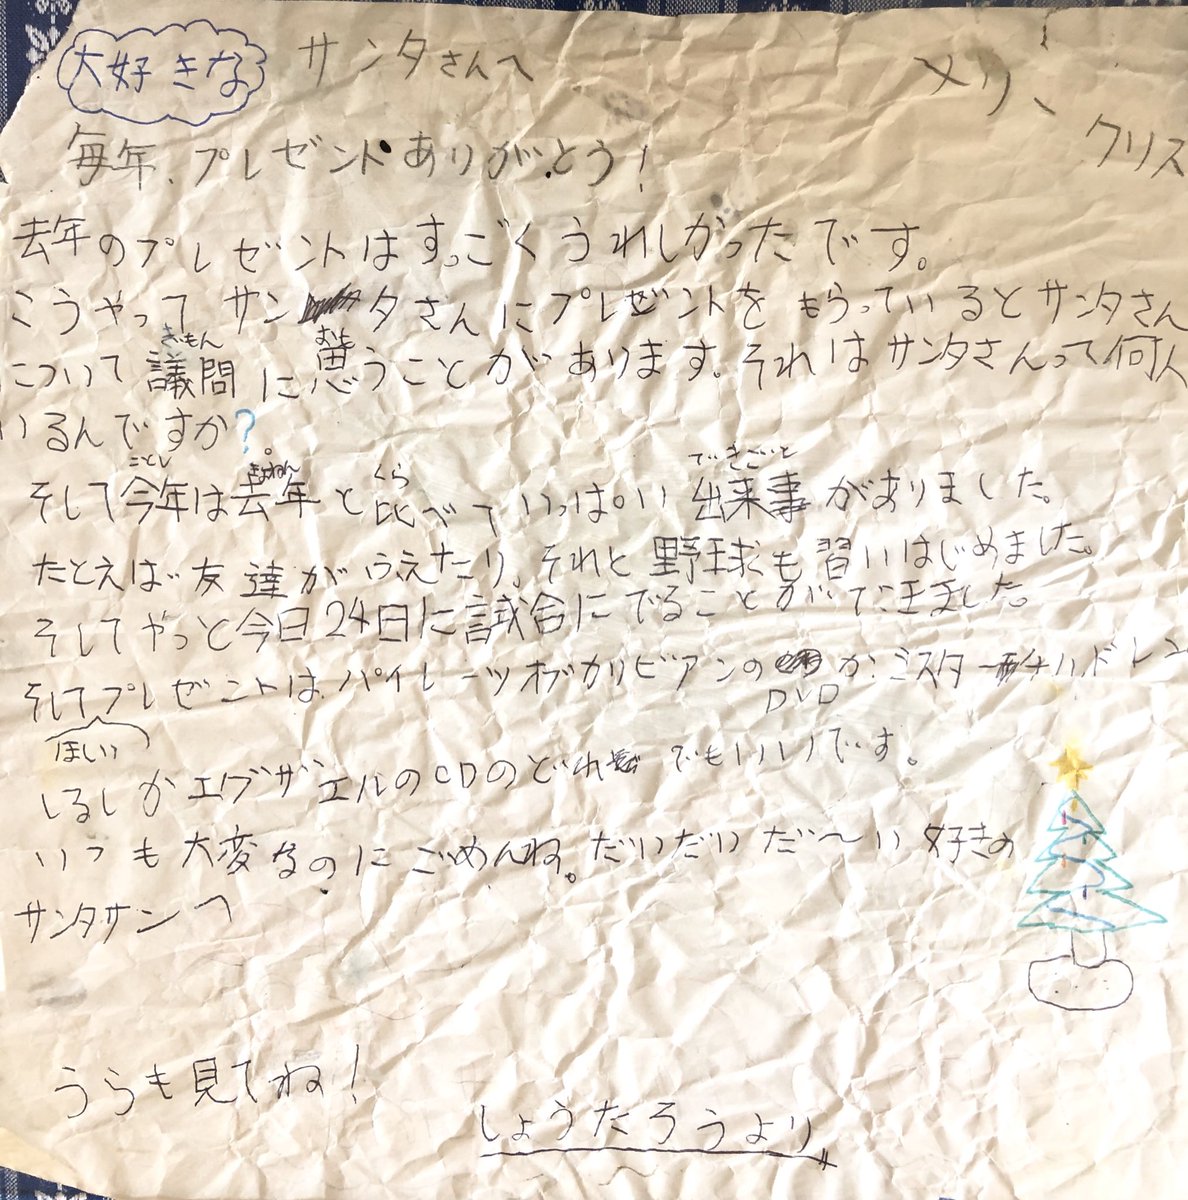 大好きな サンタさんへ
メリ、
クリス
毎年、プレゼントありがとう!
去年のプレゼントはすっごくうれしかったです。
こうやって サンタさんにプレゼントを もらっているとサンタさん
ぎもん おも
について議問に思うことがあります。それはサンタさんって何人
いるんですか?
ことし きょねん くら できごと
そして今年は去年と比べていっぱい出来事がありました。
たとえば友達がふえたり、それと野球も習いはじめました。
そしてやっと今日24日に試合にでることがで
そしてプレゼントは、パイレーツオブカリビアンの か、ミスター チルドレン
DVD
ほしい
しるしか エブザエルのCDのどれ でもいいです。
いつも大変なのにごめんね。だいだいだ〜い好きの
サンタサンへ
うらも見てね!
しょうたろうより